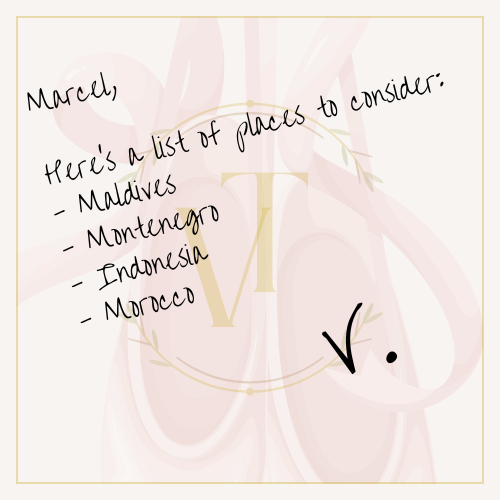 Marcel,
Here's a list of places to consider:
- Maldives
- Montenegro
- Indonesia
- Morocco
V.
VT